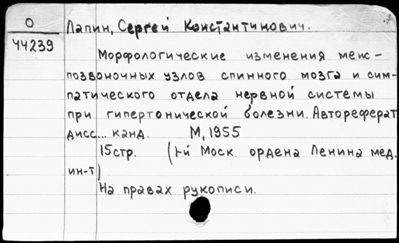 О
44239
Лапин, Сергей Константинович.
Морфологические изменения меж-
позвоночных узлов спинного мозга и сим-
патического отдела нервной системы
при гипертонической болезни. Автореферат
дисс... канд. М, 1955
15стр. (1-й Моск. ордена Ленина мед.
ин-т)
На правах рукописи.